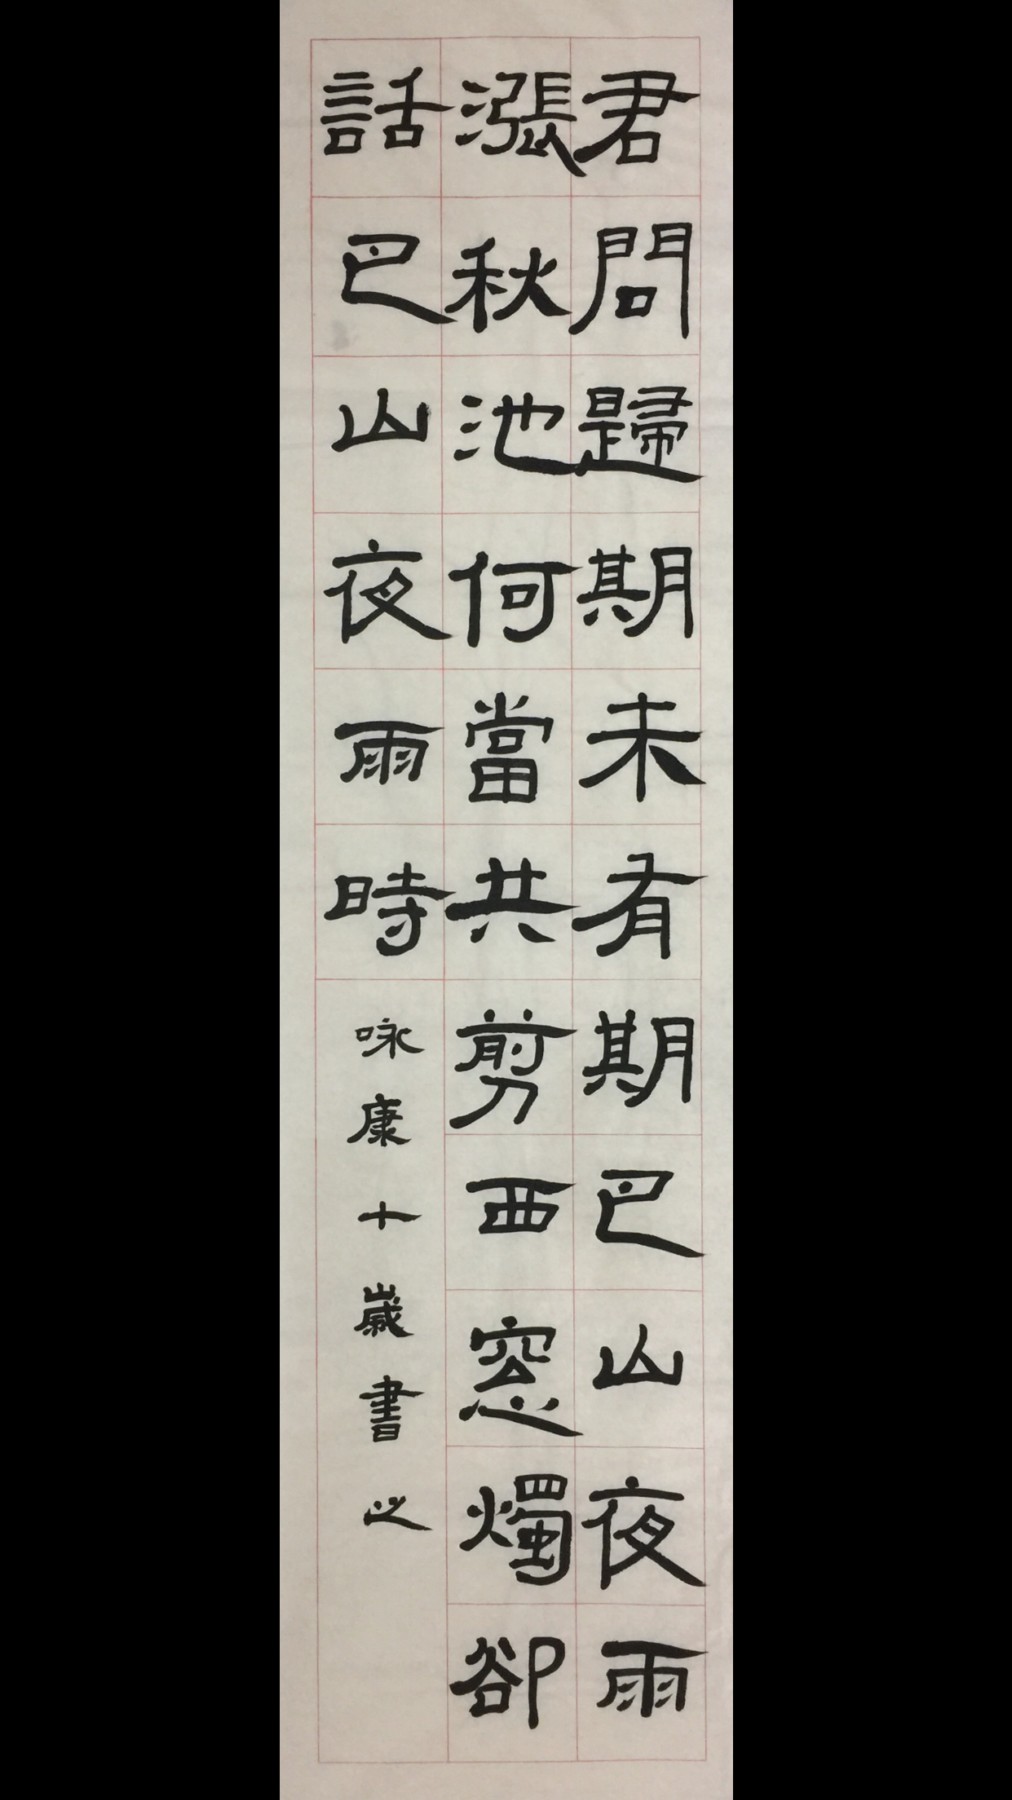 君問歸期未有期巴山夜雨
漲秋池何當共剪西窓燭卻
話巴山夜雨時
咏康十歲書之